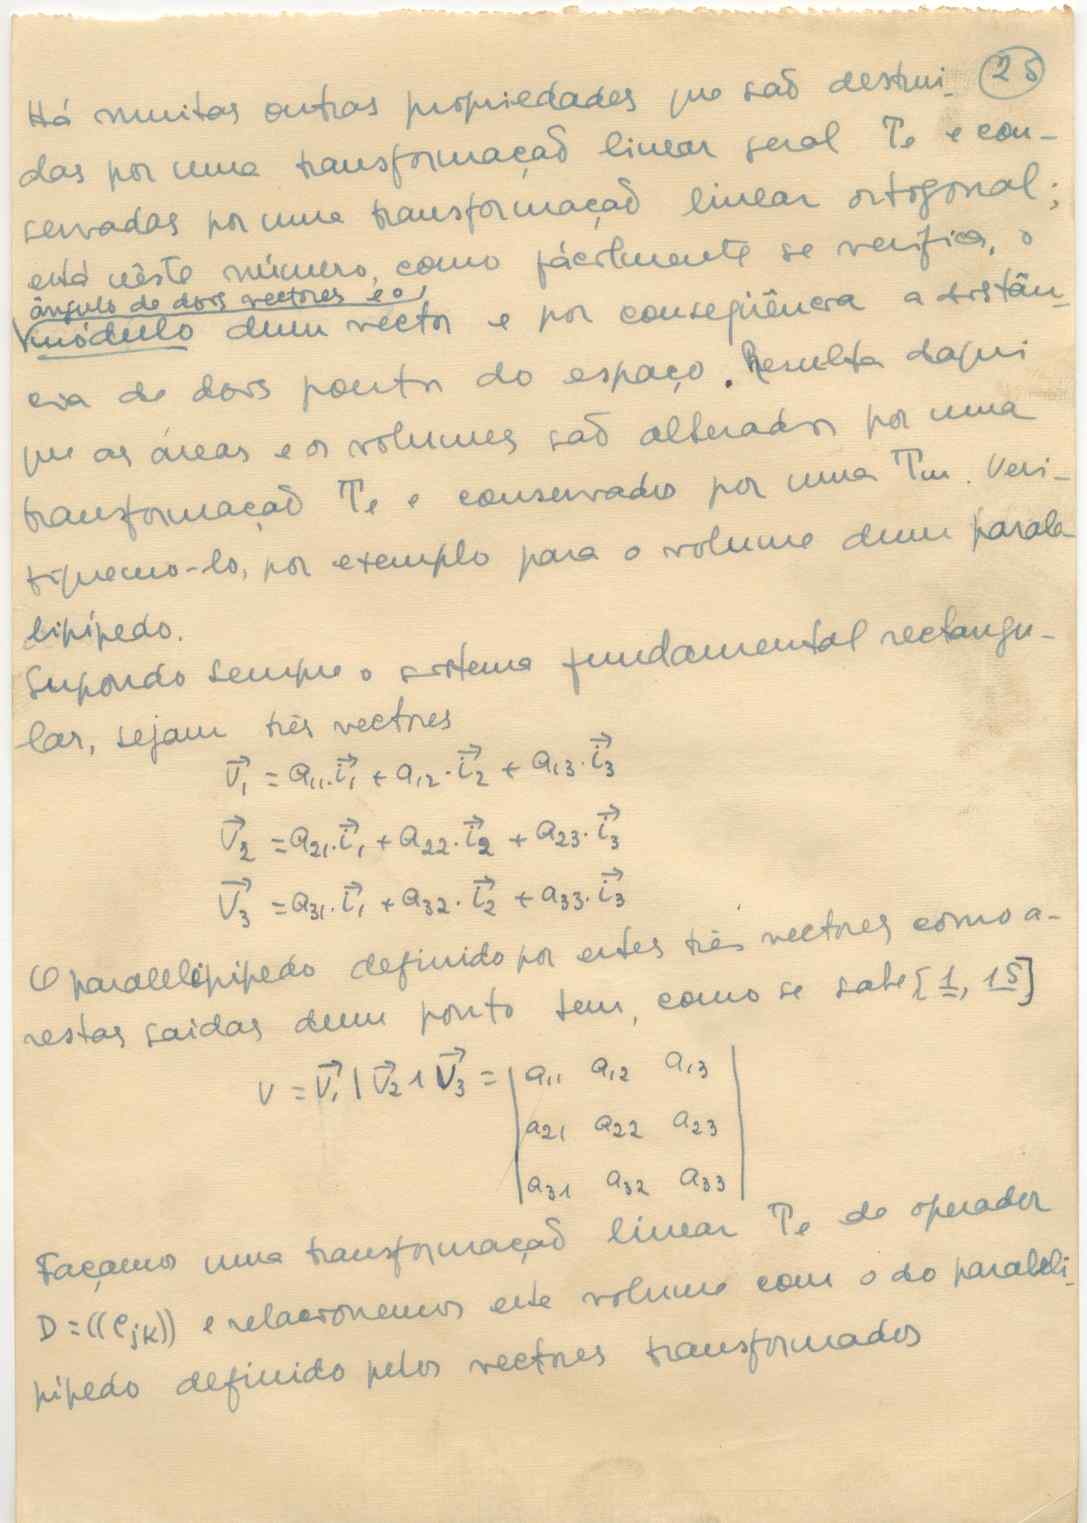 25
Há muitas outras propriedades que são destrui-
das por uma transformação linear geral Te e con-
servadas por uma transformação linear ortogonal;
está nêste número, como fácilmente se verifica, o
ângulo de dois vectores e o
módulo dum vector e por conseqüência a distân-
cia de dois pontos do espaço. Resulta daqui
que as áreas e os volumes são alterados por uma
transformação Te e conservados por uma Tm. Veri-
fiquemo-lo, por exemplo para o volume dum parale-
lipípedo.
Supondo sempre o sistema fundamental rectangu-
lar, sejam três vectores
V⃗₁ = a₁₁.i⃗₁ + a₁₂.i⃗₂ + a₁₃.i⃗₃
V⃗₂ = a₂₁.i⃗₁ + a₂₂.i⃗₂ + a₂₃.i⃗₃
V⃗₃ = a₃₁.i⃗₁ + a₃₂.i⃗₂ + a₃₃.i⃗₃
O paralelipípedo definido por estes três vectores como a-
restas saidas dum ponto tem, como se sabe [1, 15]
V = V⃗₁ | V⃗₂ ∧ V⃗₃ = | a₁₁ a₁₂ a₁₃ |
| a₂₁ a₂₂ a₂₃ |
| a₃₁ a₃₂ a₃₃ |
Façamos uma transformação linear Te de operador
D = ((e_jk)) e relacionemos este volume com o do paraleli-
pípedo definido pelos vectores transformados